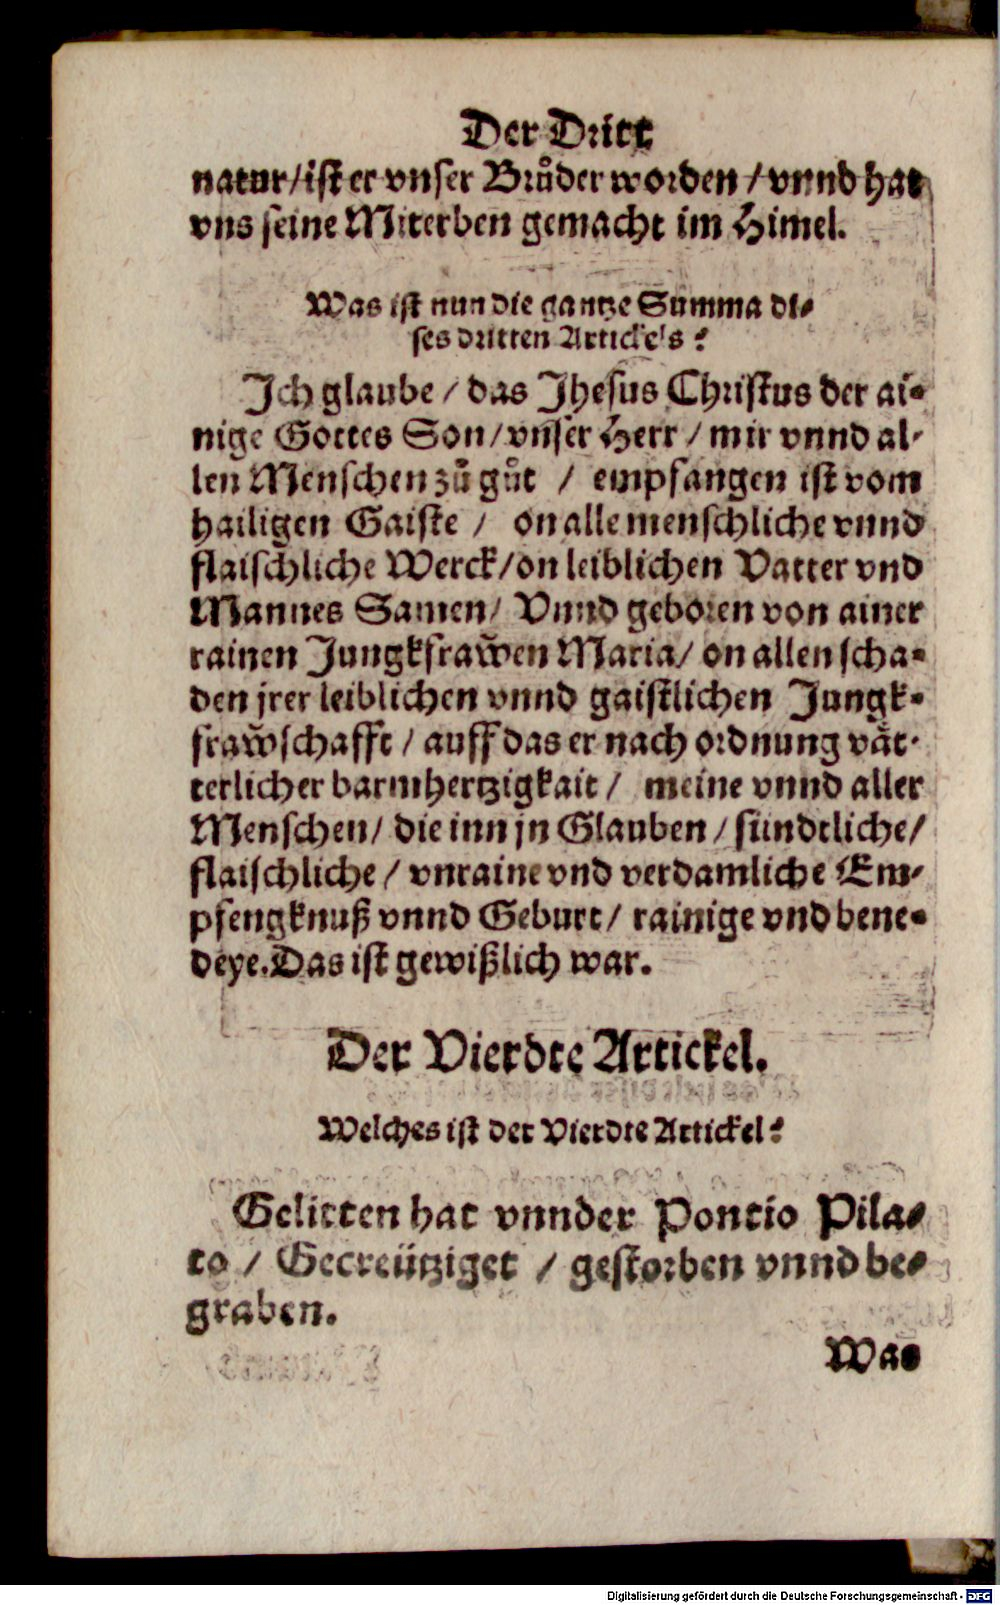 Der Dritt
natur/ ist er vnser Brůder worden / vnnd hat
vns seine Miterben gemacht im Himel.
Was ist nun die gantze Summa di-
ses dritten Artickels?
Ich glaube / das Jhesus Christus der ai-
nige Gottes Son / vnser Herr / mir vnnd al-
len Menschen zů gůt / empfangen ist vom
hailigen Gaiste / on alle menschliche vnnd
flaischliche Werck / on leiblichen Vatter vnd
Mannes Samen / Vnnd geboren von ainer
rainen Jungkfrawen Maria / on allen scha-
den jrer leiblichen vnnd gaistlichen Jungk-
frawschafft / auff das er nach ordnung vät-
terlicher barmhertzigkait / meine vnnd aller
Menschen / die inn jn Glauben / sündtliche /
flaischliche / vnraine vnd verdamliche Em-
pfengknuß vnnd Geburt / rainige vnd bene-
deye. Das ist gewißlich war.
Der Vierdte Artickel.
Welches ist der Vierdte Artickel?
Gelitten hat vnnder Pontio Pila-
to / Gecreütziget / gestorben vnnd be-
graben.
Was
Digitalisierung gefördert durch die Deutsche Forschungsgemeinschaft - DFG